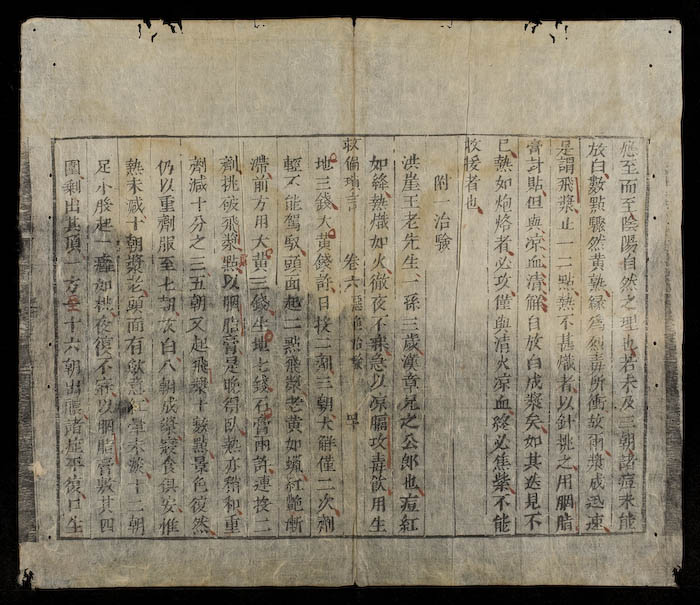 應至而至陰陽自然之理也若未及三朝諸痘未能
放白數點驟然黃熟緣為烈毒所衝故兩漿成迅速
是謂飛漿止一二點熱不甚熾者以針挑之用胭脂
膏封貼但與涼血清解自放白成漿矣如其迭見不
已熱如炮烙者必攻僅與清火涼血終必焦紫不能
收援者也
附一治驗
洪崖王老先生一孫三歲漢章兄之公郎也痘紅
如絳熱熾如火徹夜不寐急以涼膈攻毒飲用生
救偏瑣言 卷六 治驗
地三錢大黃錢許日投二劑三朝大解僅二次劑
輕不能駕馭頭面起二點飛漿老黃如蠟紅艷漸
滯前方用大黃三錢生地七錢石膏兩許連投二
劑挑破飛漿點以胭脂膏是晚得臥熱亦稍和重
劑減十分之三五朝又起飛漿十數點景色復然
仍以重劑服至七朝放白八朝成漿寢食俱安惟
熱未減十朝漿老頭面有斂意紅暈未淡十二朝
足小股起一癰如桃夜復不寐以胭脂膏敷其四
圍剩出其頂一方至十六朝出膿諸症平復口生